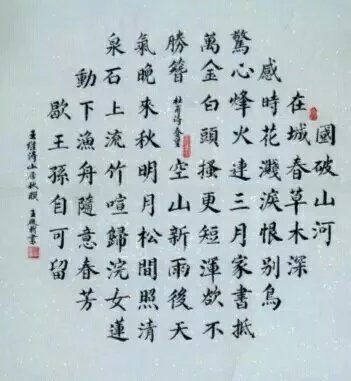 國破山河
在城春草木深
感時花濺淚恨別鳥
驚心烽火連三月家書抵
萬金白頭搔更短渾欲不
勝簪
杜甫詩春望
空山新雨後天
氣晚來秋明月松間照清
泉石上流竹喧歸浣女蓮
動下漁舟隨意春芳
歇王孫自可留
王維詩山居秋暝